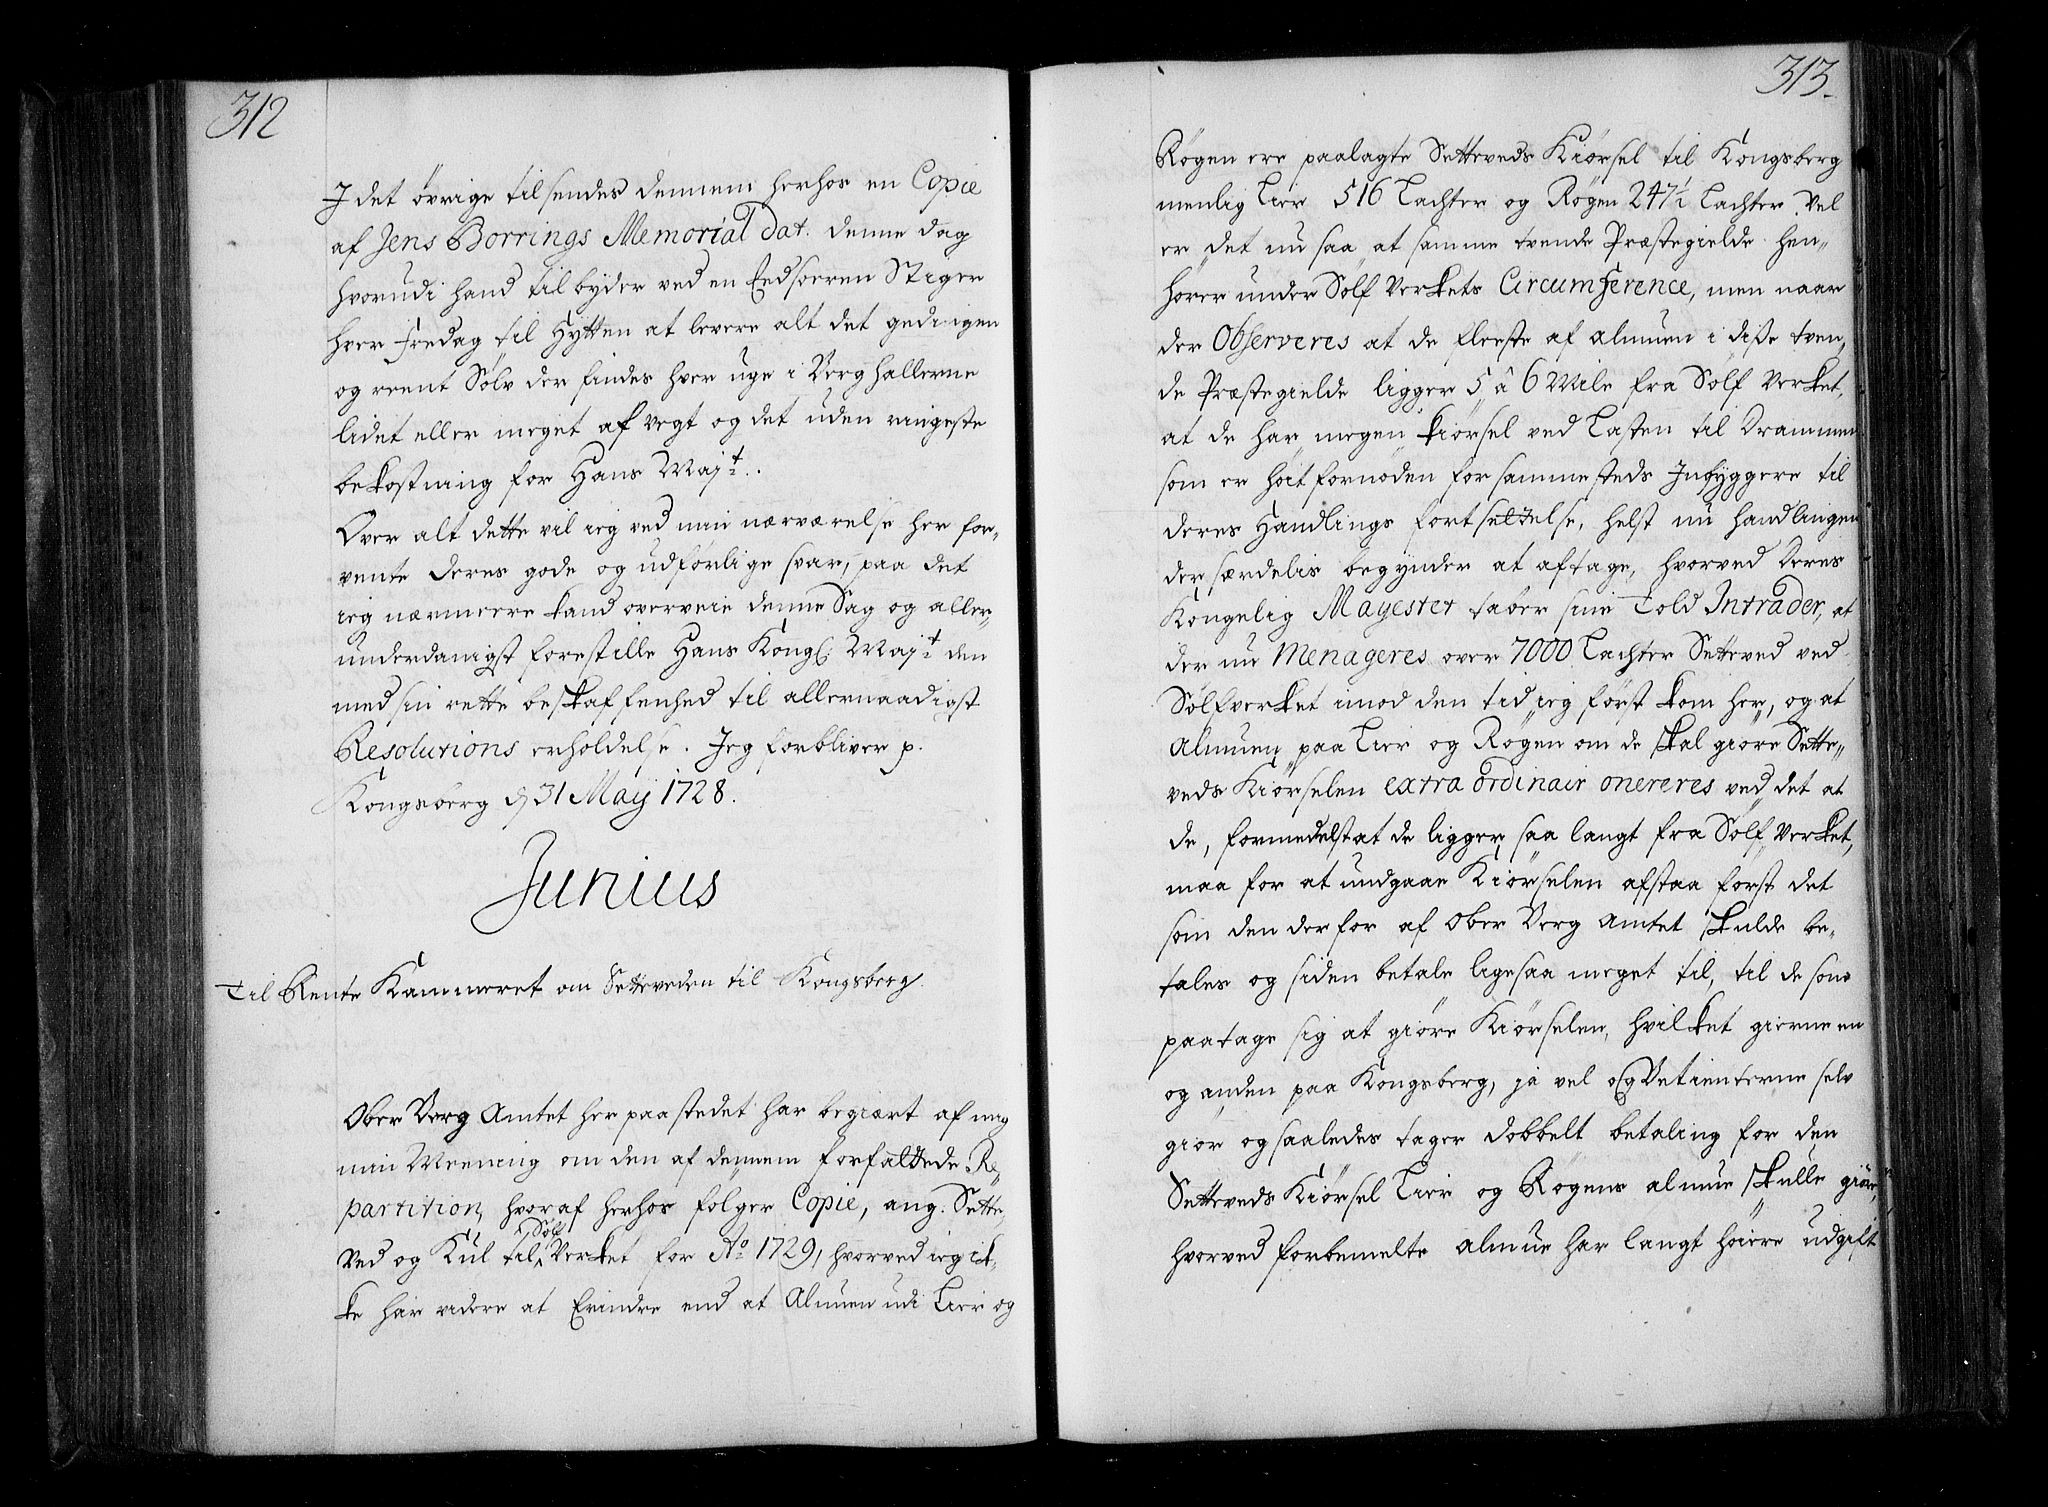 312
I det övrige tilsendes dennem herhos en Copie
af Jens Borrings Memorial dat. denne dag
hvorudi hand tilbyder ved en Eedsoeren Stiger
hver fredag til Hytten at levere alt det gedigen
og reent Sölv der findes hver uge i Berghallerne
lidet eller meget af vegt og det uden ringeste
bekostning for Hans Majt.
Over alt dette vil ieg ved min nærværelse her for-
vente deres gode og udförlige svar, paa det
ieg nærmere kand overveie denne Sag og aller-
underdanigst forestille Hans Kongl. Majt den
med sin rette beskaffenhed til allernaadigst
Resolutions erholdelse. Jeg forbliver p.
Kongsberg d 31 May 1728.
Junius
Til Rente Kammeret om Setteveden til Kongsberg.
Ober Berg Amtet her paa stedet har begiært af mig
min Meening om den af dennem forfattede Re-
partition, hvoraf herhos fölger Copie, ang. Sette-
Ved og Kul til Sölv Verket for Ao 1729, hvorved ieg ik-
ke har videre at Erindre end at Almuen udi Lier og
313.
Rögen ere paalagte Setteveds Kiörsel til Kongsberg
menlig Lier 516 Lachter og Rögen 247½ Lachter. Vel
er det nu saa at samme tvende Præstegielde hen-
hörer under Sölf Verkets Circumference, men naar
der Observeres at de fleeste af almuen i diße tven-
de Præstegielde ligger 5 á 6 Mile fra Sölf Verket,
at de har megen kiörsel ved Lasten til Drammen
som er höit fornöden for sammesteds Indbyggere til
deres Handlings fortsettelse, helst nu handlingen
der særdelis begynder at aftage, hvorved Deres
Kongelig Mayestet taber sine Told Intrader, at
der nu Menageres over 7000 Lachter Setteved ved
Sölfverket imod den tid ieg först kom her, og at
Almuen paa Lier og Rögen om de skal giöre Sette-
veds Kiörselen extra ordinair onereres ved det at
de, formedelst at de ligger saa langt fra Sölf Verket,
maa for at undgaae Kiörselen afstaa först det
som den derfor af Ober Berg Amtet skulde be-
tales og siden betale ligesaa meget til, til de som
paatage sig at giöre Kiörselen, hvilket gierne en
og anden paa Kongsberg, ja vel og Betienterne selv
giör og saaledes tager dobbelt betaling for den
Setteveds Kiörsel Lier og Rögens almue skulle giöre
hvorved forbemelte almue har langt höiere udgift